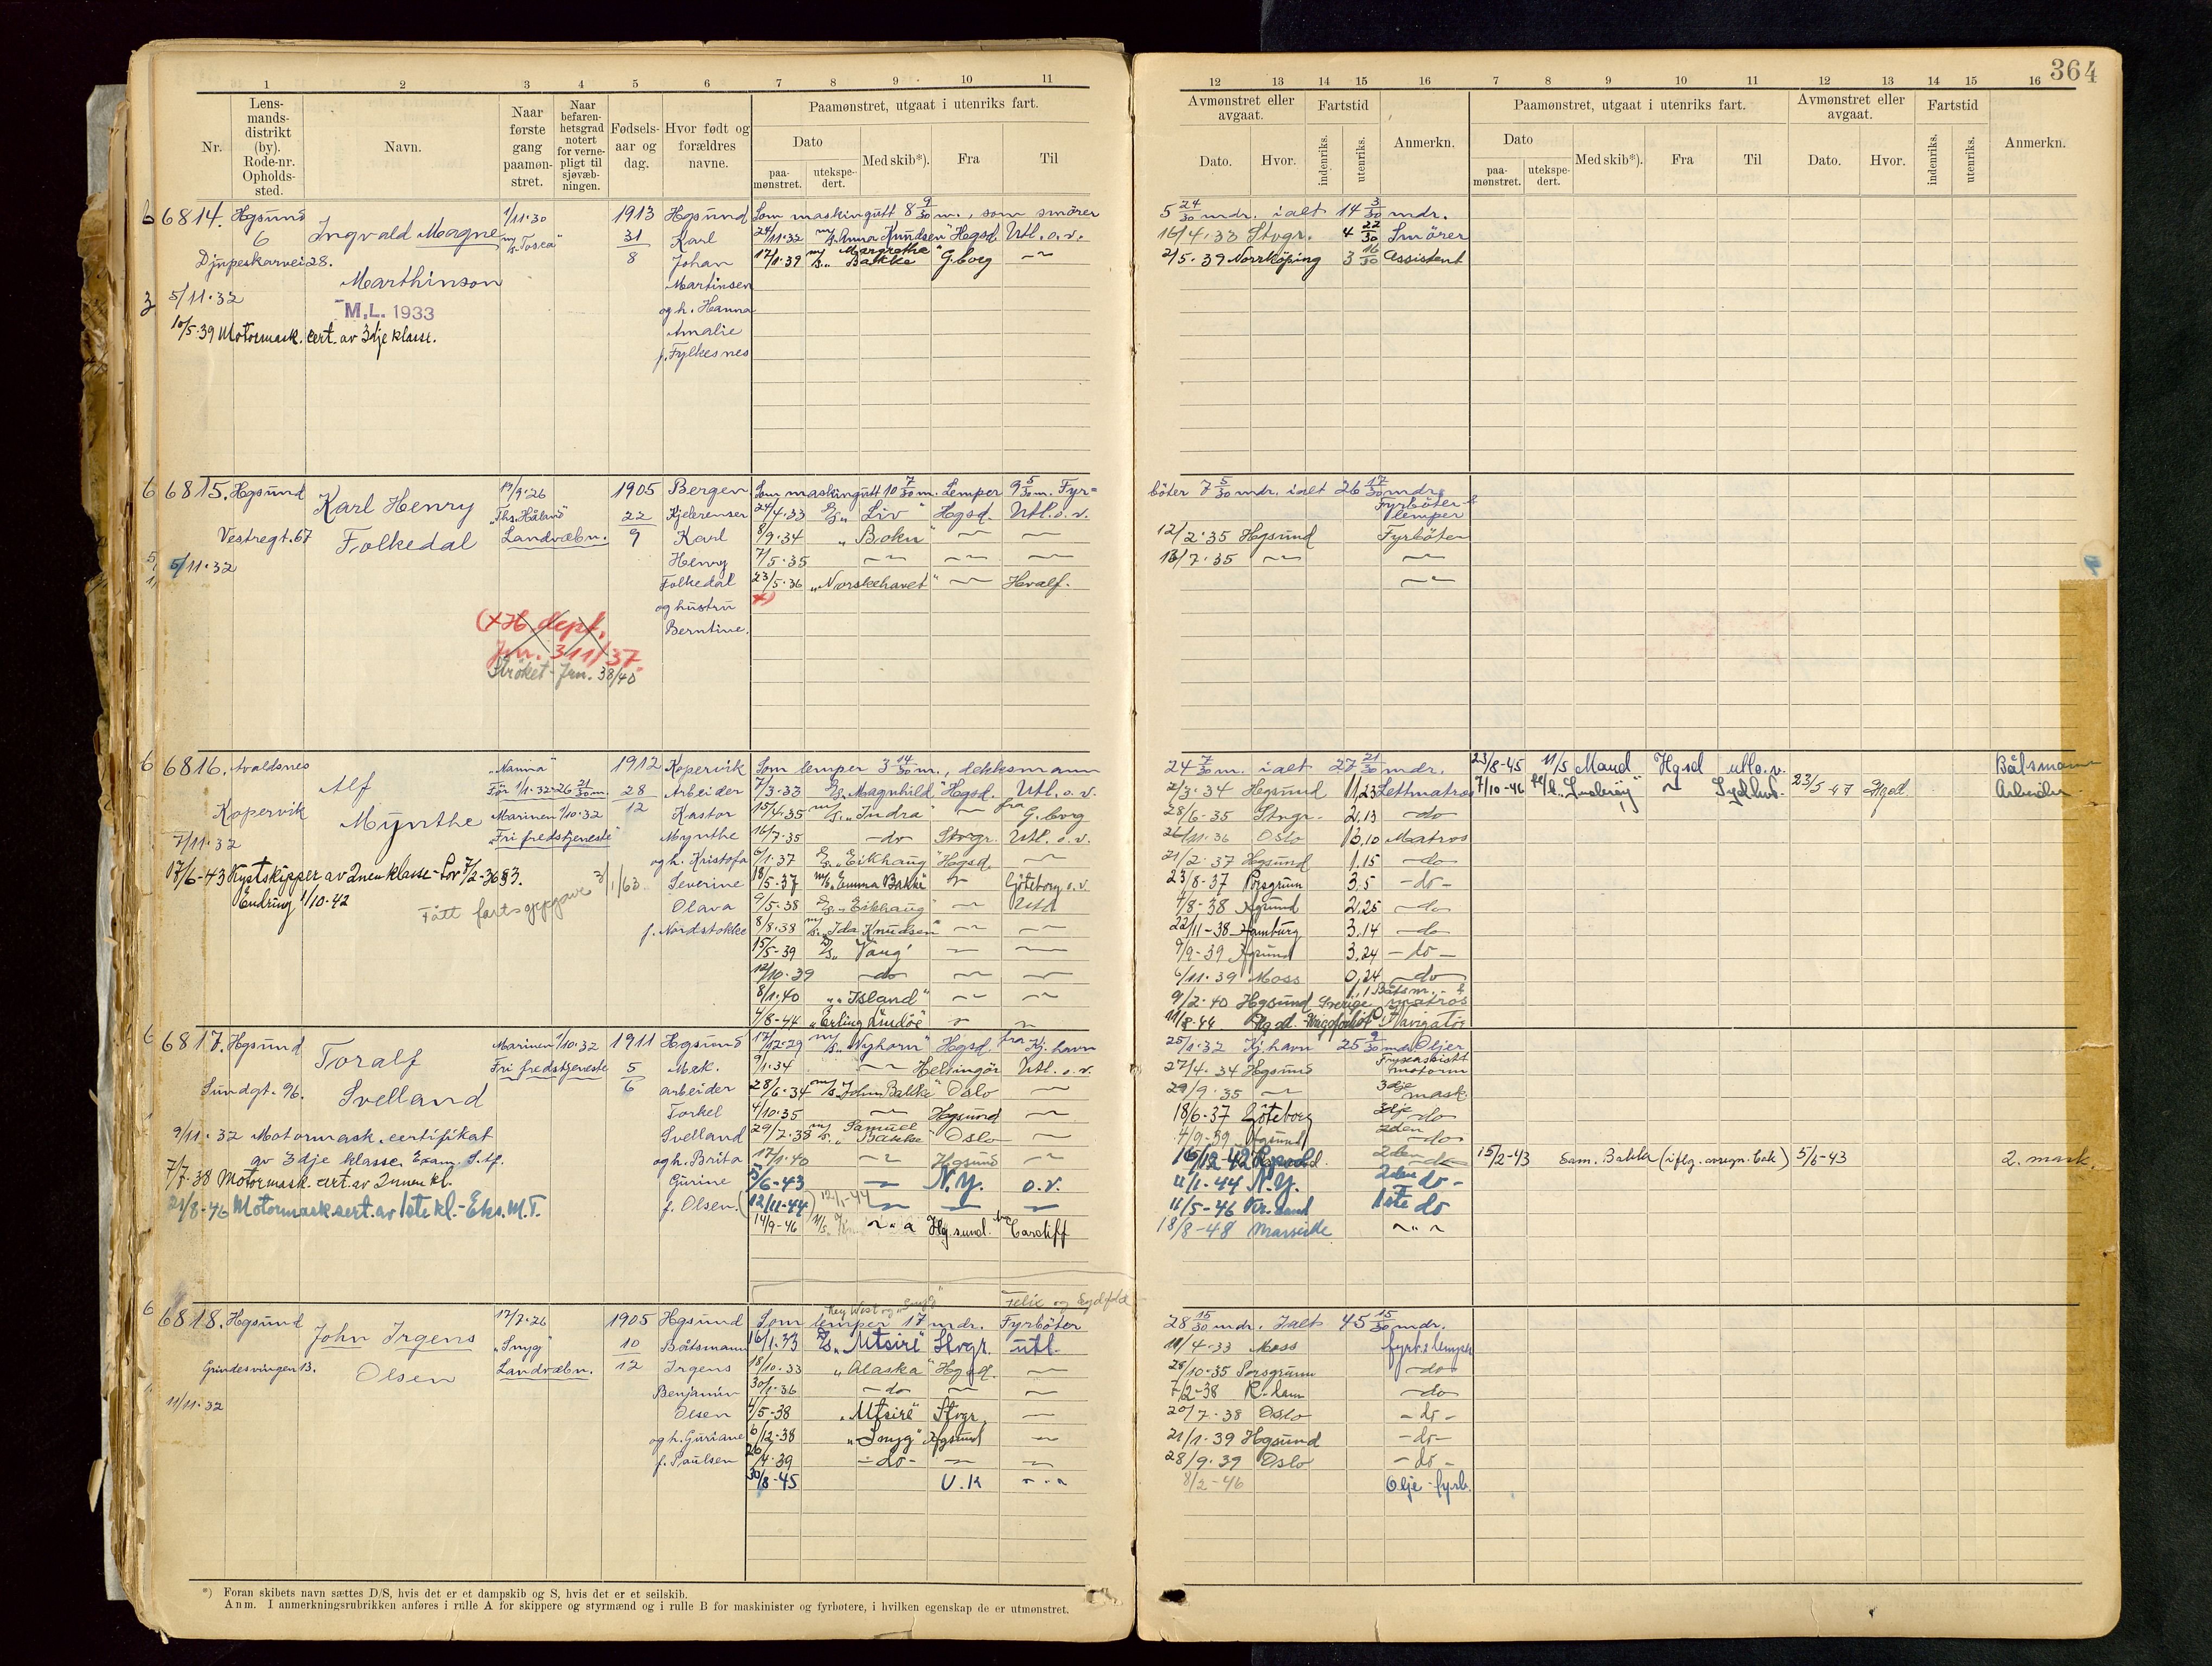 364
1 2 3 4 5 6 7 8 9 10 11
Nr.
Lens-
mands-
distrikt
(by).
Rode-nr.
Opholds-
sted.
Navn.
Naar
første
gang
paamøn-
stret.
Naar
befaren-
hetsgrad
notert
for verne-
pligt til
sjøvæb-
ningen.
Fødsels-
aar og
dag.
Hvor født og
forældres
navne.
Paamønstret, utgaat i utenriks fart.
Dato
paa-
mønstret.
utekspe-
dert.
Med skib*).
Fra
Til
12 13 14 15 16 7 8 9 10 11 12 13 14 15 16
Avmønstret eller
avgaat.
Dato. Hvor.
Fartstid
indenriks. utenriks.
Anmerkn.
Paamønstret, utgaat i utenriks fart.
Dato
paa-
mønstret.
utekspe-
dert.
Med skib*). Fra Til
Avmønstret eller
avgaat.
Dato. Hvor.
Fartstid
indenriks. utenriks.
Anmerkn.
6 6814. Hgsund
6
Djupeskarvei 28.
5/11.32
Ingvald Magne
Marthinson
M.L. 1933
10/5-39 Motormask. cert. av 3dje klasse.
1/11.30
m/s "Tosca"
1913
31
8
Hgsund
Karl
Johan
Martinsen
og h. Hanna
Amalie
f. Fylkesnes
Som maskingutt 8 9/30 m., som smører
24/11.32 m/s "Anna Knudsen" Hgsd. Utl. o. v.
17/1.39 m/s "Margrethe Bakke" G.borg
5 24/30 mdr. ialt 14 3/30 mdr.
16/4.33 Stvgr. 4 22/30 Smører
2/5.39 Norrköping 3 16/30 Assistent
6 6815. Hgsund
Vestregt. 67
5/11.32
Karl Henry
Folkedal
19/9.26
"Ths. Håland"
Landvæbn.
1905
22
9
Bergen
Karl
Henry
Folkedal
og hustru
Berntine.
(x H. dept.
Jnr. 311/37.
Strøket - Jnr. 38/40
Som maskingutt 10 7/30 m. Lemper 9 5/30 m. Fyr-
24/4.33 D/S "Liv" Hgsd. Utl. o. v.
8/9.34 "Bokn"
7/5.35
23/5.36 "Norskehavet" Hvalf.
x)
bøter 7 5/30 mdr. ialt 26 17/30 mdr.
Fyrbøter &
lemper
12/2.35 Hgsund Fyrbøter
13/7.35
6 6816. Avaldsnes
Kopervik
7/11.32
Alf
Mynthe
17/6-43 Kystskipper av 2nen klasse - Lov 7/2-36 § 3.
Endring 1/10-42
Fått fartsoppgave 3/1/63
"Nanna"
Før 1/1.32: 26 21/30 m.
Marinen 1/10.32
"Fri fredstjeneste"
1912
28
12
Kopervik
Arbeider
Kastor
Mynthe
og h. Kristofa
Severine
Olava
f. Nordstokke
Som lemper 3 14/30 m., dekksmann
7/3.33 D/S "Magnhild" Hgsd. Utl. o. v.
15/4.35 m/s "Indra" fra G.borg
16/7.35 do Stvgr. Utl. o. v.
6/1.37 D/S "Eikhaug" Hgsd.
18/5-37 m/s "Emma Bakke" Göteborg o.v.
9/5-38 D/S "Eikhaug" Utl
8/8.38 m/s "Ida Knudsen"
15/5-39 D/S "Vang"
12/10.39 do
8/1.40 "Island"
4/8-44 "Erling Lindøe"
24 7/30 m. ialt 27 21/30 mdr.
2/3.34 Hgsund 11,23 Lettmatros
28/6-35 Stvgr. 2,13 do
26/11.36 Oslo 13,10 Matros
21/2.37 Hgsund 1,15 do
23/8-37 Porsgrunn 3,5 do
4/8-38 Hgsund 2,25 do
22/11-38 Hamburg 3,14 do
9/9-39 Hgsund 3,24 do
6/11.39 Moss 0,24 do
9/2-40 Hgsund Sverige 1,1 Båtsm. - & matros
11/8-44 Hgsd. Navigatør
23/8-45 11/5 Maud Hgsd utl o. v. Båtsmann
7/10-46 Sydhvd. 23/5-47 Hgsd. Arbeider
6 6817. Hgsund
Sundgt. 96.
9/11.32 Motormask. certifikat
av 3dje klasse. Exam.
7/7.38 Motormask. cert. av 2nen kl.
21/8-46 Motormask sert. av 1ste kl. - Eks. M. T.
Toralf
Svelland
Marinen 1/10.32
Fri fredstjeneste
1911
5
6
Hgsund
Mek.
arbeider
Torkel
Svelland
og h. Brita
Gurine
f. Olsen.
17/12-29 m/s "Nyhorn" Hgsd. fra Kj.havn
9/1.34 Helsingør Utl. o. v.
28/6.34 m/s "John Bakke" Oslo
4/10.35 Hgsund
29/7.38 m/s "Samuel Bakke" Oslo
17/1.40 Hgsund
5/6-43 N.Y. o.v.
(12/11-44) 12/1-44
14/9-46 Hg.sund. fra Cardiff
25/1.32 Kj.havn 25 9/30 mdr Oljer
27/4.34 Hgsund Fryseassist
motorm
29/9.35 3dje mask.
18/6-37 Göteborg 3dje do
4/9-39 Hgsund 2den do
16/12-42 2den do
11/1-44 N.Y. 2den do
11/5-46 Kr.sand 1ste do
18/8-48 Marseille
15/2-43 Sam. Bakke (iflg. avregn. bok) 5/6-43 2. mask.
6 6818. Hgsund
Grindesvingen 13.
11/11.32
John Irgens
Olsen
17/7.26
"Snyg"
Landvæbn.
1905
10
12
Hgsund
Båtsmann
Irgens
Benjamin
Olsen
og h. Guriane
f. Paulsen
Key West og "Snyg" Felix og Sydfold
Som lemper 17 mdr. Fyrbøter
16/1.33 D/S "Utsire" Stvgr. utl.
18/10.33 "Alaska" Hgsd.
30/1-36 do
4/5-38 "Utsire" Stvgr.
6/12-38 "Snyg" Hgsund
26/4.39 do
30/8-45 U.K
28 15/30 mdr. Ialt 45 15/30 mdr.
11/4-33 Moss fyrb. & lemper
28/10-35 Porsgrunn do
7/2-38 do
20/7.38 Oslo do
21/1.39 Hgsund do
28/9.39 Oslo do
8/2-46 Olje-fyrb.
*) Foran skibets navn sættes D/S, hvis det er et dampskib og S, hvis det er et seilskib.
Anm. I anmerkningsrubrikken anføres i rulle A for skippere og styrmænd og i rulle B for maskinister og fyrbøtere, i hvilken egenskap de er utmønstret.